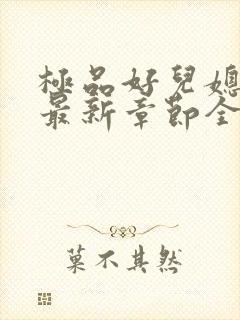 極品好兒媳
最新章節全
菓不其然